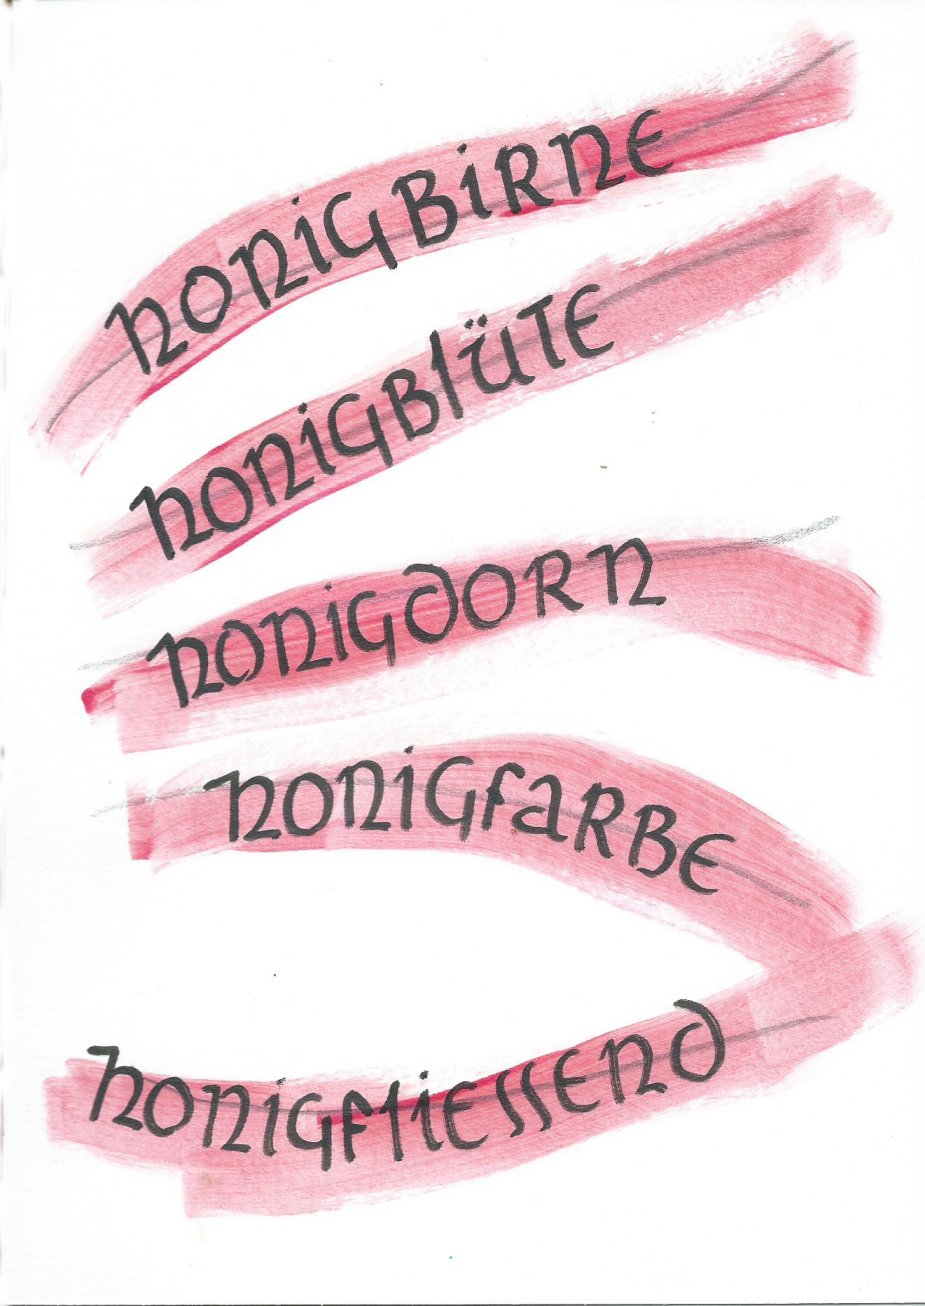 honigbirne
honigblüte
honigdorn
honigfarbe
honigfliessend